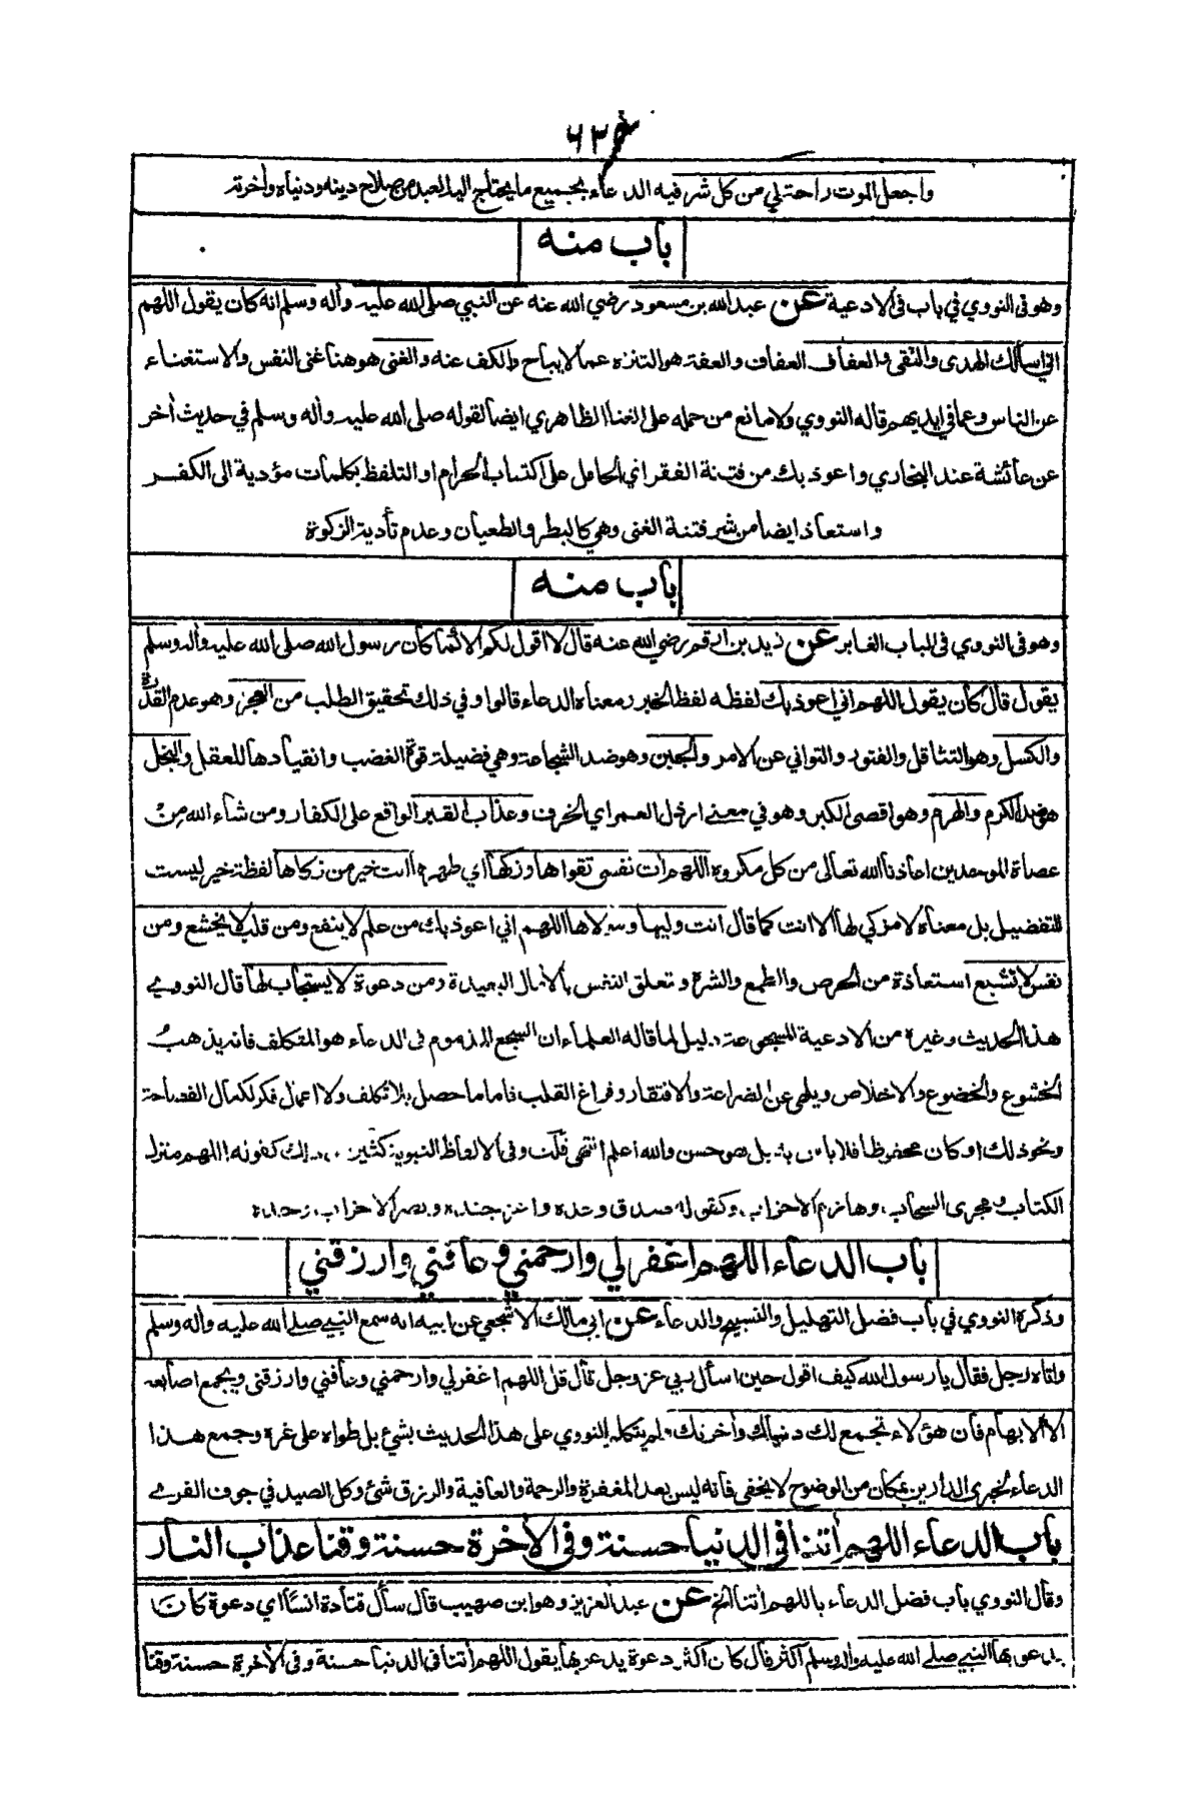 ٦٢٣
واجعل الموت راحة لي من كل شر فيه الدعاء بجميع ما يحتاج اليه العبد من صلاح دينه ودنياه وأخرته
باب منه
وهو في النووي في باب في الادعية عن عبد الله بن مسعود رضي الله عنه عن النبي صلى الله عليه وأله وسلم انه كان يقول اللهم
اني اسألك الهدى والتقى والعفاف العفاف والعفة هو التنزه عما لا يباح والكف عنه والغنى هو هنا غنى النفس والاستغناء
عن الناس وعما في ايديهم قاله النووي ولا مانع من حمله على الغنا الظاهري ايضا لقوله صلى الله عليه وأله وسلم في حديث أخر
عن عائشة عند البخاري واعوذ بك من فتنة الفقر اي الحامل على اكتساب الحرام او التلفظ بكلمات مؤدية الى الكفر
واستعاذ ايضا من شر فتنة الغنى وهي كالبطر والطغيان وعدم تأدية الزكوة
باب منه
وهو في النووي في الباب الغابر عن زيد بن ارقم رضي الله عنه قال لا اقول لكم الا كما كان رسول الله صلى الله عليه وأله وسلم
يقول قال كان يقول اللهم اني اعوذ بك لفظه لفظ الخبر ومعناه الدعاء قالوا وفي ذلك تحقيق الطلب من العجز وهو عدم القدرة
والكسل وهو التثاقل والفتور والتواني عن الامر والجبن وهو ضد الشجاعة وهي فضيلة قوة الغضب وانقيادها للعقل والبخل
هو ضد الكرم والهرم وهو اقصى الكبر وهو في معنى ارذل العمر اي الخرف وعذاب القبر الواقع على الكفار ومن شاء الله من
عصاة الموحدين اعاذنا الله تعالى من كل مكروه اللهم أت نفسي تقواها وزكها اي طهرها انت خير من زكاها لفظة خير ليست
للتفضيل بل معناه لا مزكي لها الا انت كما قال انت وليها ومولاها اللهم اني اعوذ بك من علم لا ينفع ومن قلب لا يخشع ومن
نفس لا تشبع استعاذة من الحرص والطمع والشره وتعلق النفس بالأمال البعيدة ومن دعوة لا يستجاب لها قال النووي
هذا الحديث وغيره من الادعية المسجوعة دليل لما قاله العلماء ان السجع المذموم في الدعاء هو المتكلف فانه يذهب
الخشوع والخضوع والاخلاص ويلهي عن الضراعة والافتقار وفراغ القلب فاما ما حصل بلا تكلف ولا اعمال فكر لكمال الفصاحة
ونحو ذلك او كان محفوظا فلا باس به بل هو حسن والله اعلم انتهى قلت وفي الالفاظ النبوية كثير من ذلك كقوله اللهم منزل
الكتاب ومجرى السحاب وهازم الاحزاب وكقوله صدق وعده واعز جنده وهزم الاحزاب وحده
باب الدعاء اللهم اغفر لي وارحمني وعافني وارزقني
وذكره النووي في باب فضل التهليل والتسبيح والدعاء عن ابي مالك الاشجعي عن ابيه انه سمع النبي صلى الله عليه وأله وسلم
واتاه رجل فقال يا رسول الله كيف اقول حين اسأل ربي عز وجل قال قل اللهم اغفر لي وارحمني وعافني وارزقني ويجمع اصابعه
الا الابهام فان هؤلاء تجمع لك دنياك وأخرتك ولم يتكلم النووي على هذا الحديث بشيء بل طواه على غره وجمع هذا
الدعاء لخيري الدارين بمكان من الوضوح لا يخفى فانه ليس بعد المغفرة والرحمة والعافية والرزق شئ وكل الصيد في جوف الفرى
باب الدعاء اللهم أتنا في الدنيا حسنة وفي الأخرة حسنة وقنا عذاب النار
وقال النووي باب فضل الدعاء باللهم أتنا الخ عن عبد العزيز وهو ابن صهيب قال سأل قتادة انسا اي دعوة كان
يدعو بها النبي صلى الله عليه وأله وسلم اكثر قال كان اكثر دعوة يدعو بها يقول اللهم أتنا في الدنيا حسنة وفي الأخرة حسنة وقنا